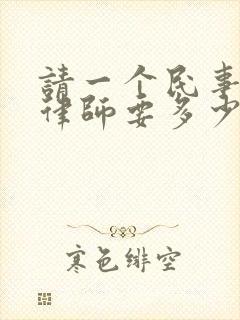 請一个民事
律師要多少
寒色緋空